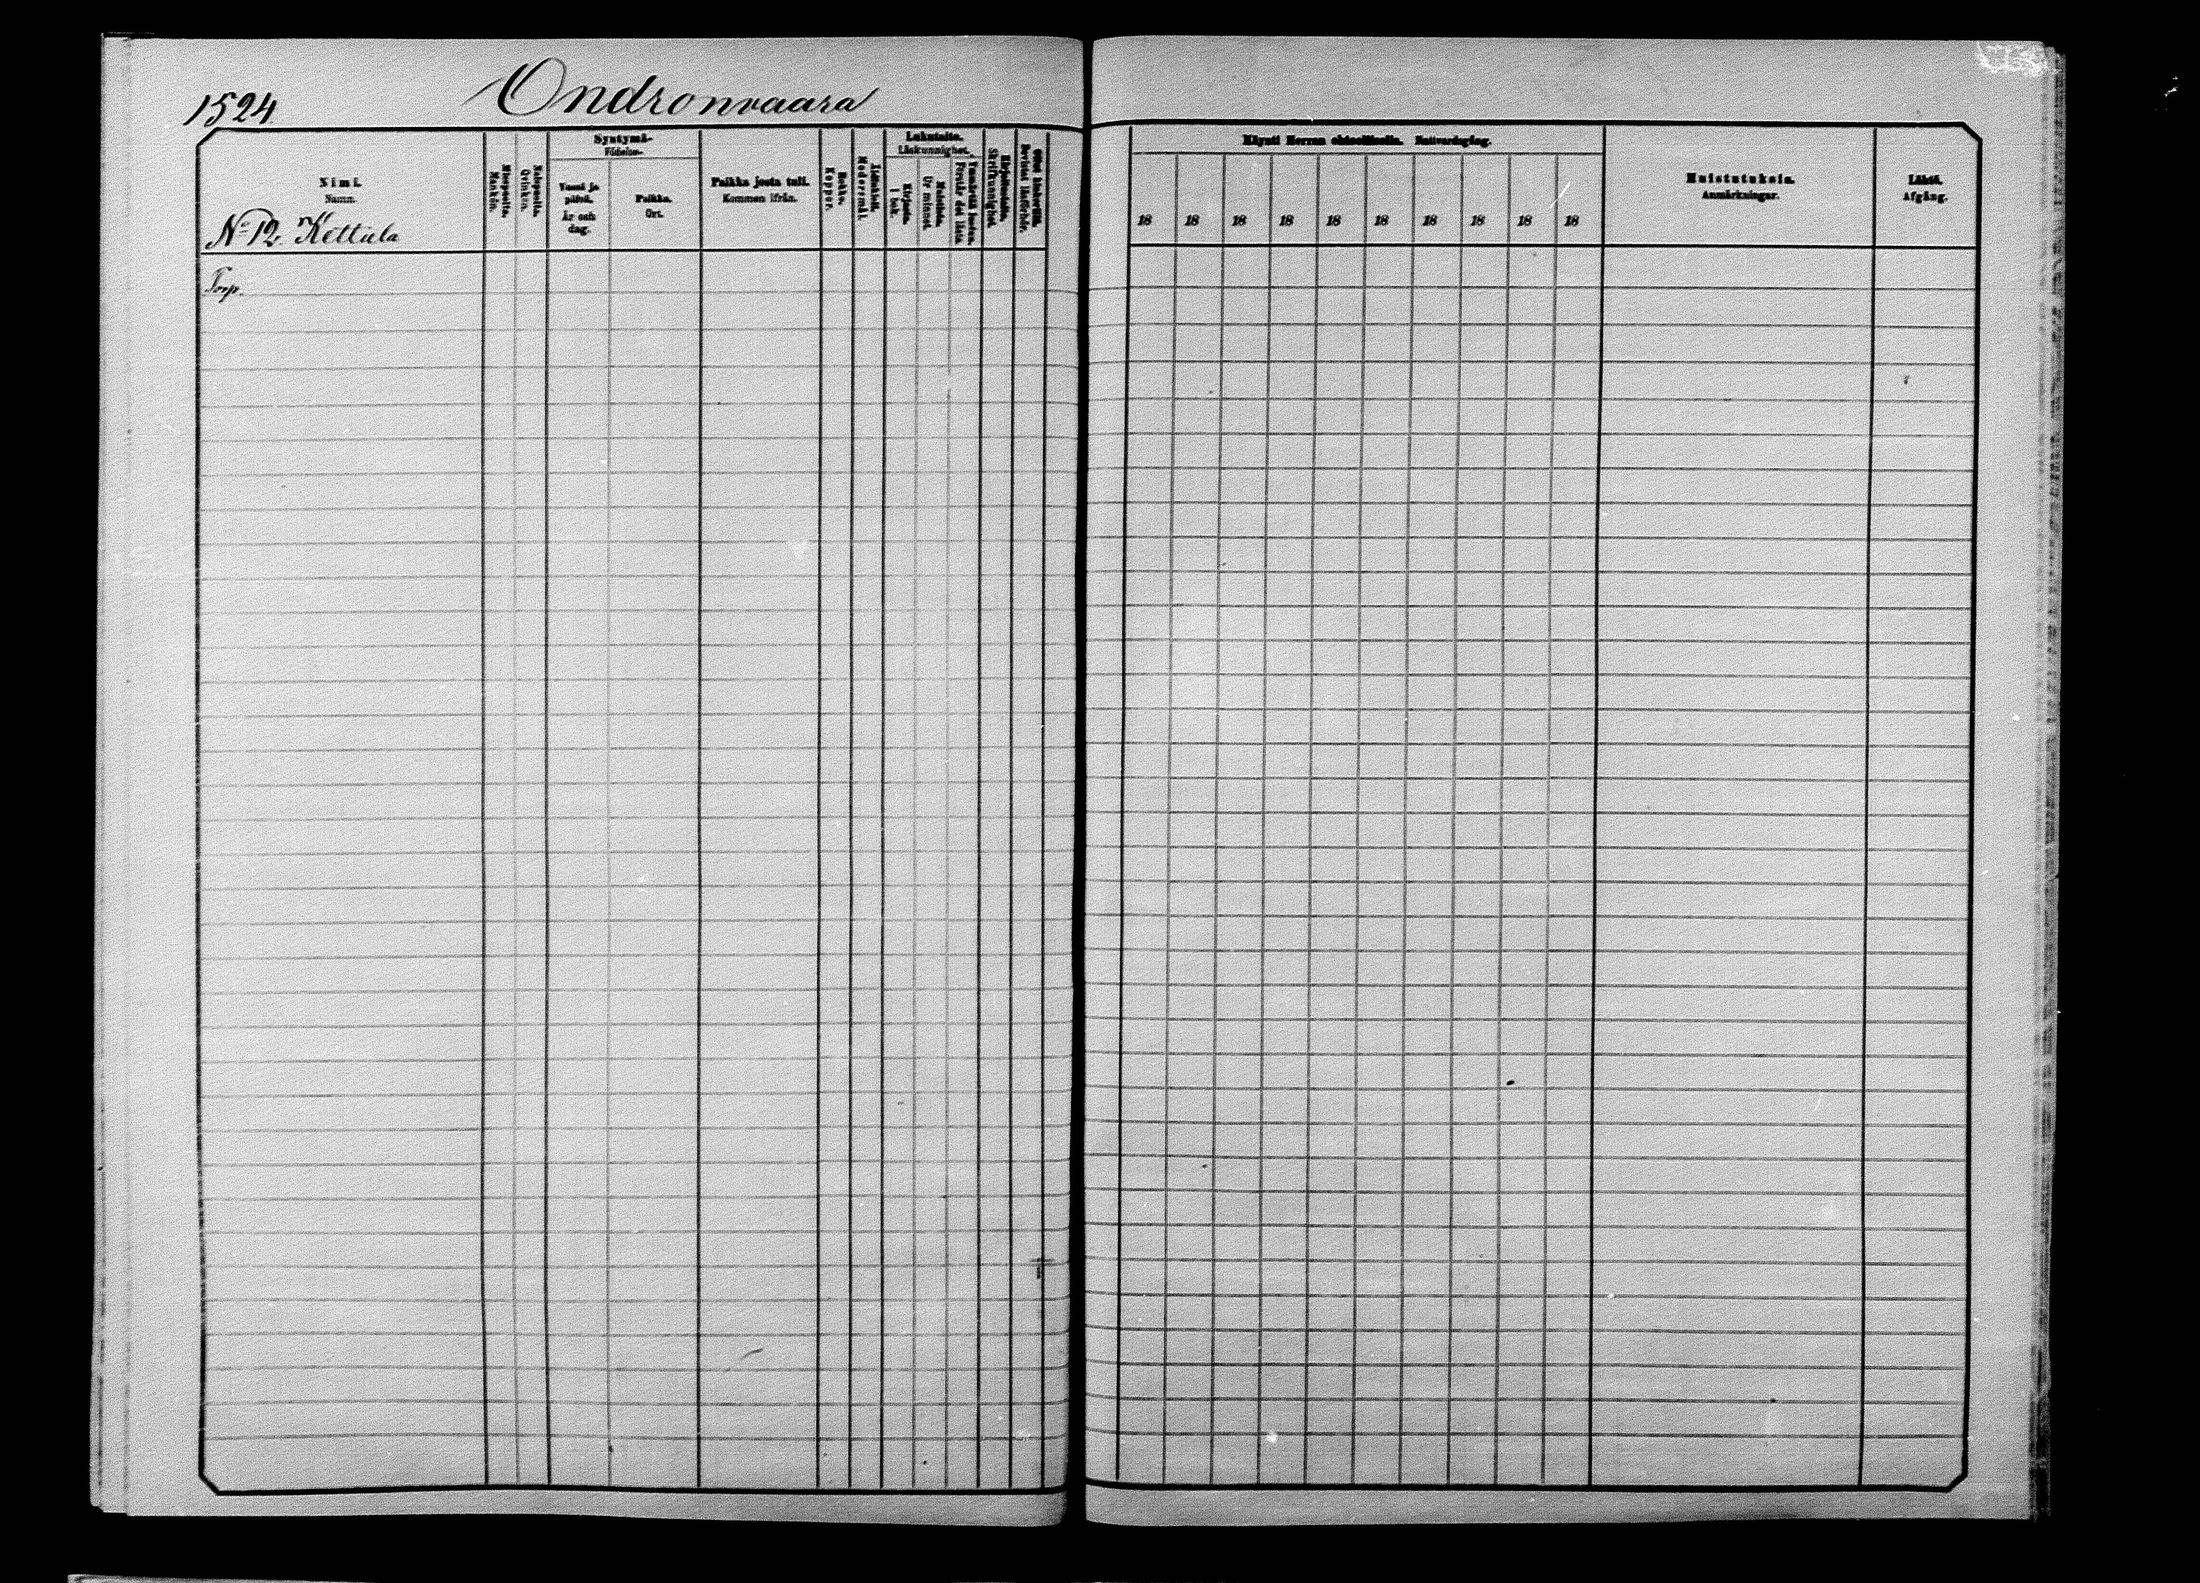 1524
Ondronvaara
Nimi.
Namn.
No 12. Kettula
Miespuolia.
Mankön.
Naispuolia.
Qvinkön.
Syntymä-
Födelse-
Vuosi ja
päivä.
År och
dag.
Paikka.
Ort.
Paikka josta tuli.
Kommen ifrån.
Rokko.
Koppor.
Äidinkieli.
Modersmål.
Lukutaito.
Läskunnighet.
Kirjasta.
I bok.
Muistista.
Ur minnet.
Förstår det lästa
Kirjoitustaito.
Skrifkunnighet.
Bevistat läseförhör.
Käynti Herran ehtoollisella. Nattvardsgång.
18 18 18 18 18 18 18 18 18 18
Muistutuksia.
Anmärkningar.
Lähtö.
Afgång.
Torp.